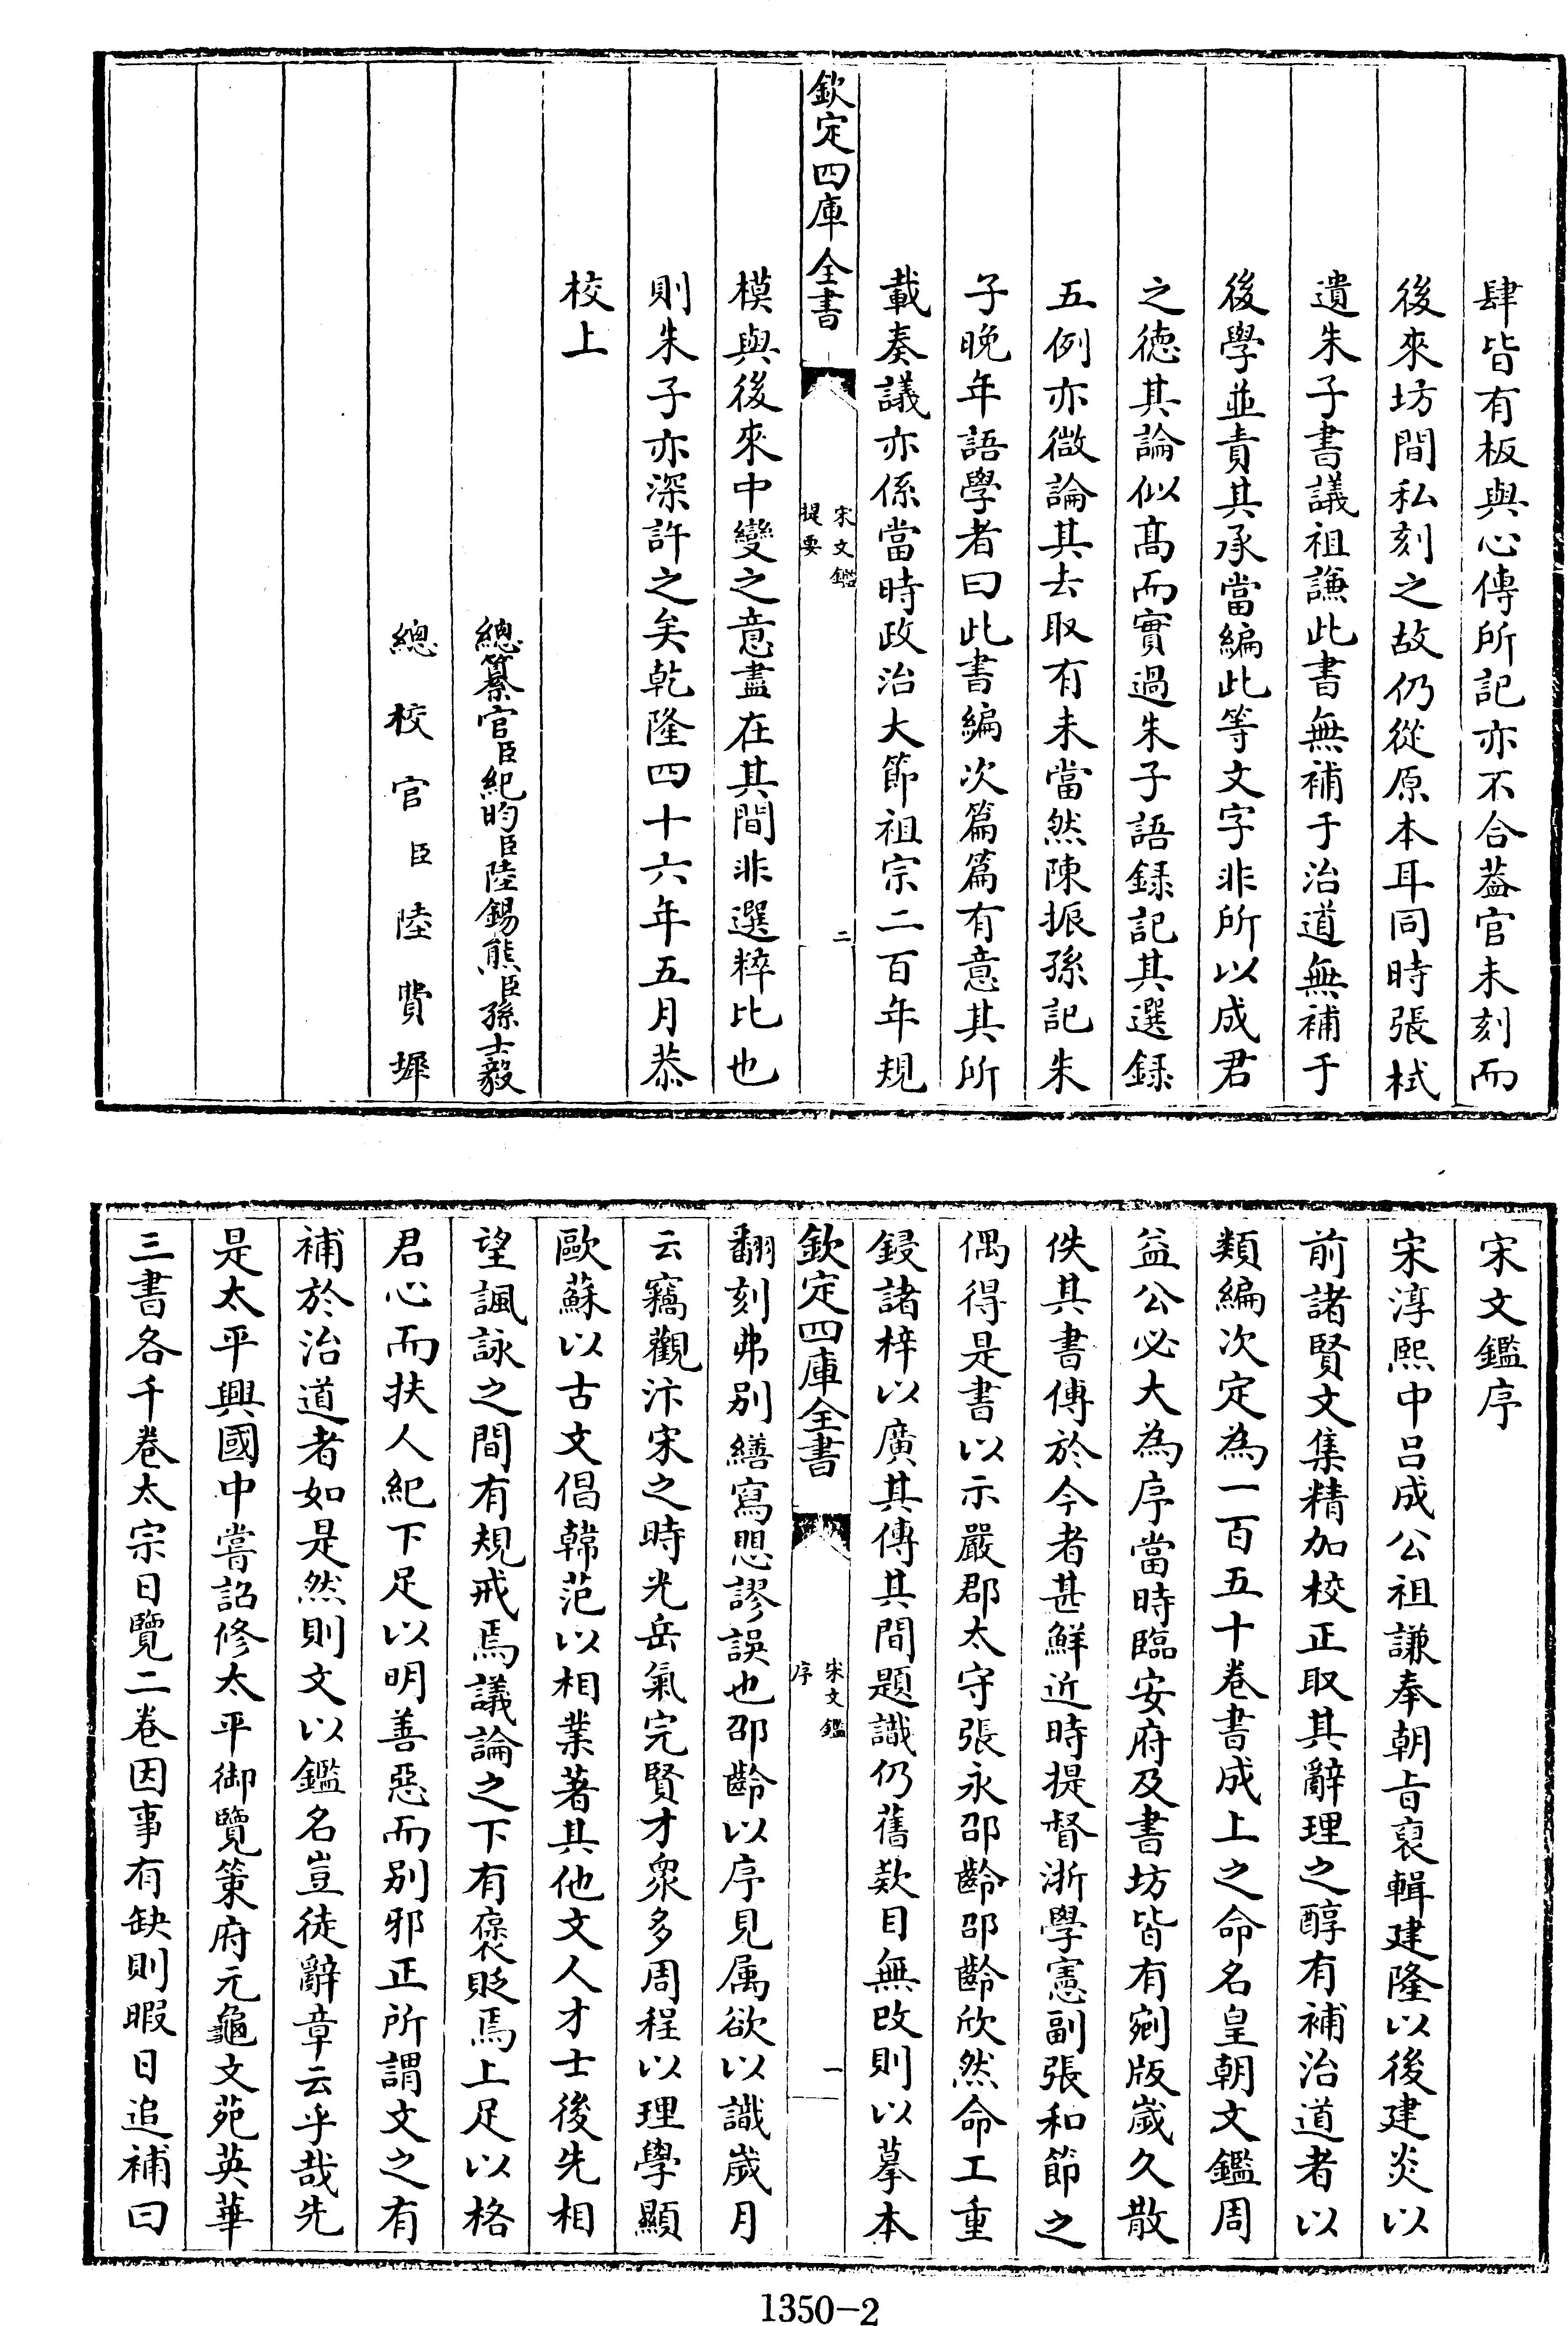 肆皆有板與心傳所記亦不合葢官未刻而
後來坊間私刻之故仍從原本耳同時張栻
遺朱子書議祖謙此書無補于治道無補于
後學並責其承當編此等文字非所以成君
之德其論似髙而實過朱子語録記其選録
五例亦微論其去取有未當然陳振孫記朱
子晚年語學者曰此書編次篇篇有意其所
載奏議亦係當時政治大節祖宗二百年規
欽定四庫全書
宋文鑑
提要
二
模與後來中變之意盡在其間非選粹比也
則朱子亦深許之矣乾隆四十六年五月恭
校上
總纂官臣紀昀臣陸錫熊臣孫士毅
總校官臣陸費墀
宋文鑑序
宋淳熙中呂成公祖謙奉朝㫖裒輯建隆以後建炎以
前諸賢文集精加校正取其辭理之醇有補治道者以
類編次定為一百五十卷書成上之命名皇朝文鑑周
益公必大為序當時臨安府及書坊皆有剜版歲久散
佚其書傳於今者甚鮮近時提督浙學憲副張和節之
偶得是書以示嚴郡太守張永邵齡邵齡欣然命工重
鋟諸梓以廣其傳其間題識仍舊欵目無改則以摹本
欽定四庫全書
宋文鑑
序
一
翻刻弗别繕寫愳謬誤也邵齡以序見属欲以識歲月
云竊觀汴宋之時光岳氣完賢才衆多周程以理學顯
歐蘇以古文倡韓范以相業著其他文人才士後先相
望諷詠之間有規戒焉議論之下有褒貶焉上足以格
君心而扶人紀下足以明善惡而别邪正所謂文之有
補於治道者如是然則文以鑑名豈徒辭章云乎哉先
是太平興國中嘗詔修太平御覽策府元龜文苑英華
三書各千卷太宗日覽二卷因事有缺則暇日追補曰
1350-2